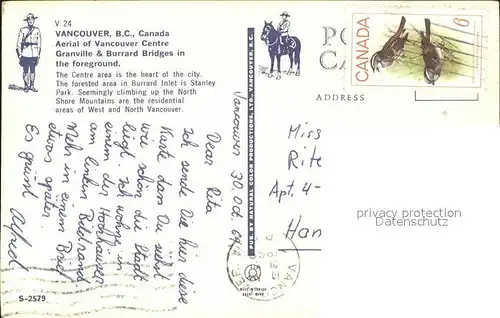 V 24
VANCOUVER, B.C., Canada
Aerial of Vancouver Centre
Granville & Burrard Bridges in
the foreground.
The Centre area is the heart of the city.
The forested area in Burrard Inlet is Stanley
Park. Seemingly climbing up the North
Shore Mountains are the residential
areas of West and North Vancouver.
S-2579
Vancouver 30. Oct 69
Dear Rita
Ich sende Die hier diese
Karte dan Du siehst
wie schön die Stadt
liegt. ich wohne in
einem der Hochhäuser
am linken Bildrand.
Mehr in einem Brief
etwas später
Es grüsst Alfred
PUB. BY NATURAL COLOR PRODUCTIONS, LTD. VANCOUVER, B.C.
MADE IN CANADA
CANADA
6
PO
CA
ADDRESS
Miss
Rite
Apt. 4-
Han
privacy protection
Datenschutz